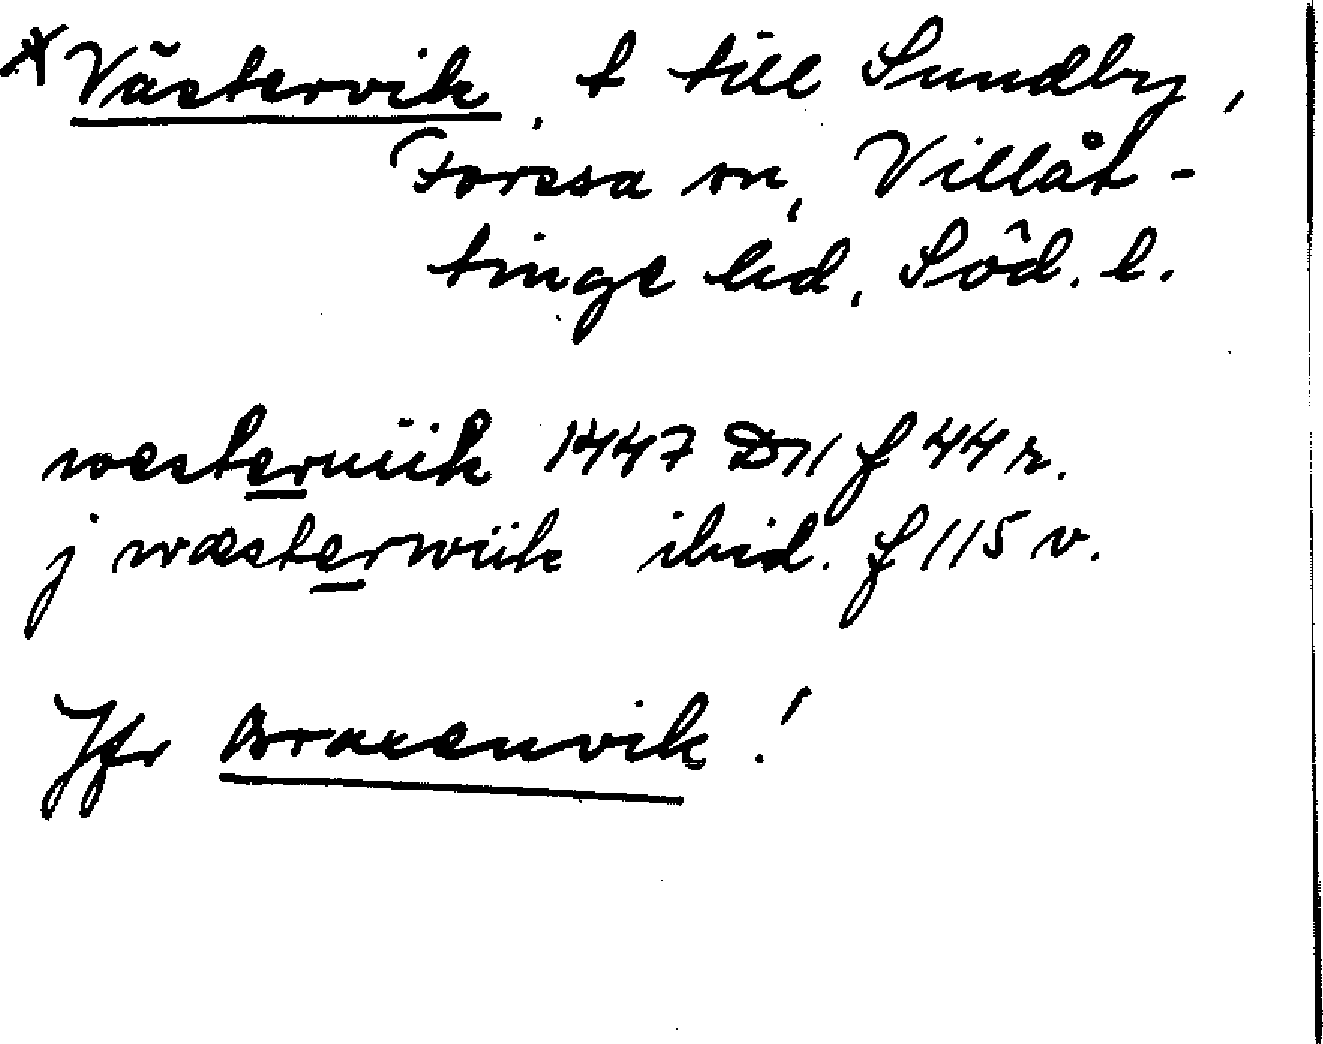 *Västervik, t till Sundby,
Forssa sn, Villåt-
tinge hd, Söd. l.
westeruiik 1447 D11 f 44 r.
j wæsterwiik ibid. f 115 v.
Jfr Braxenvik!